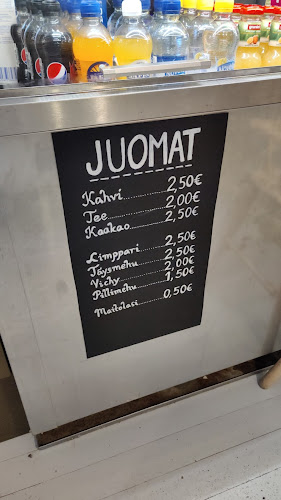 pepsi
JUOMAT
Kahvi............2,50€
Tee...............2,00€
Kaakao.........2,50€
Limppari.......2,50€
Täysmehu......2,50€
Vichy............2,00€
Pillimehu.......1,50€
Maitolasi.......0,50€